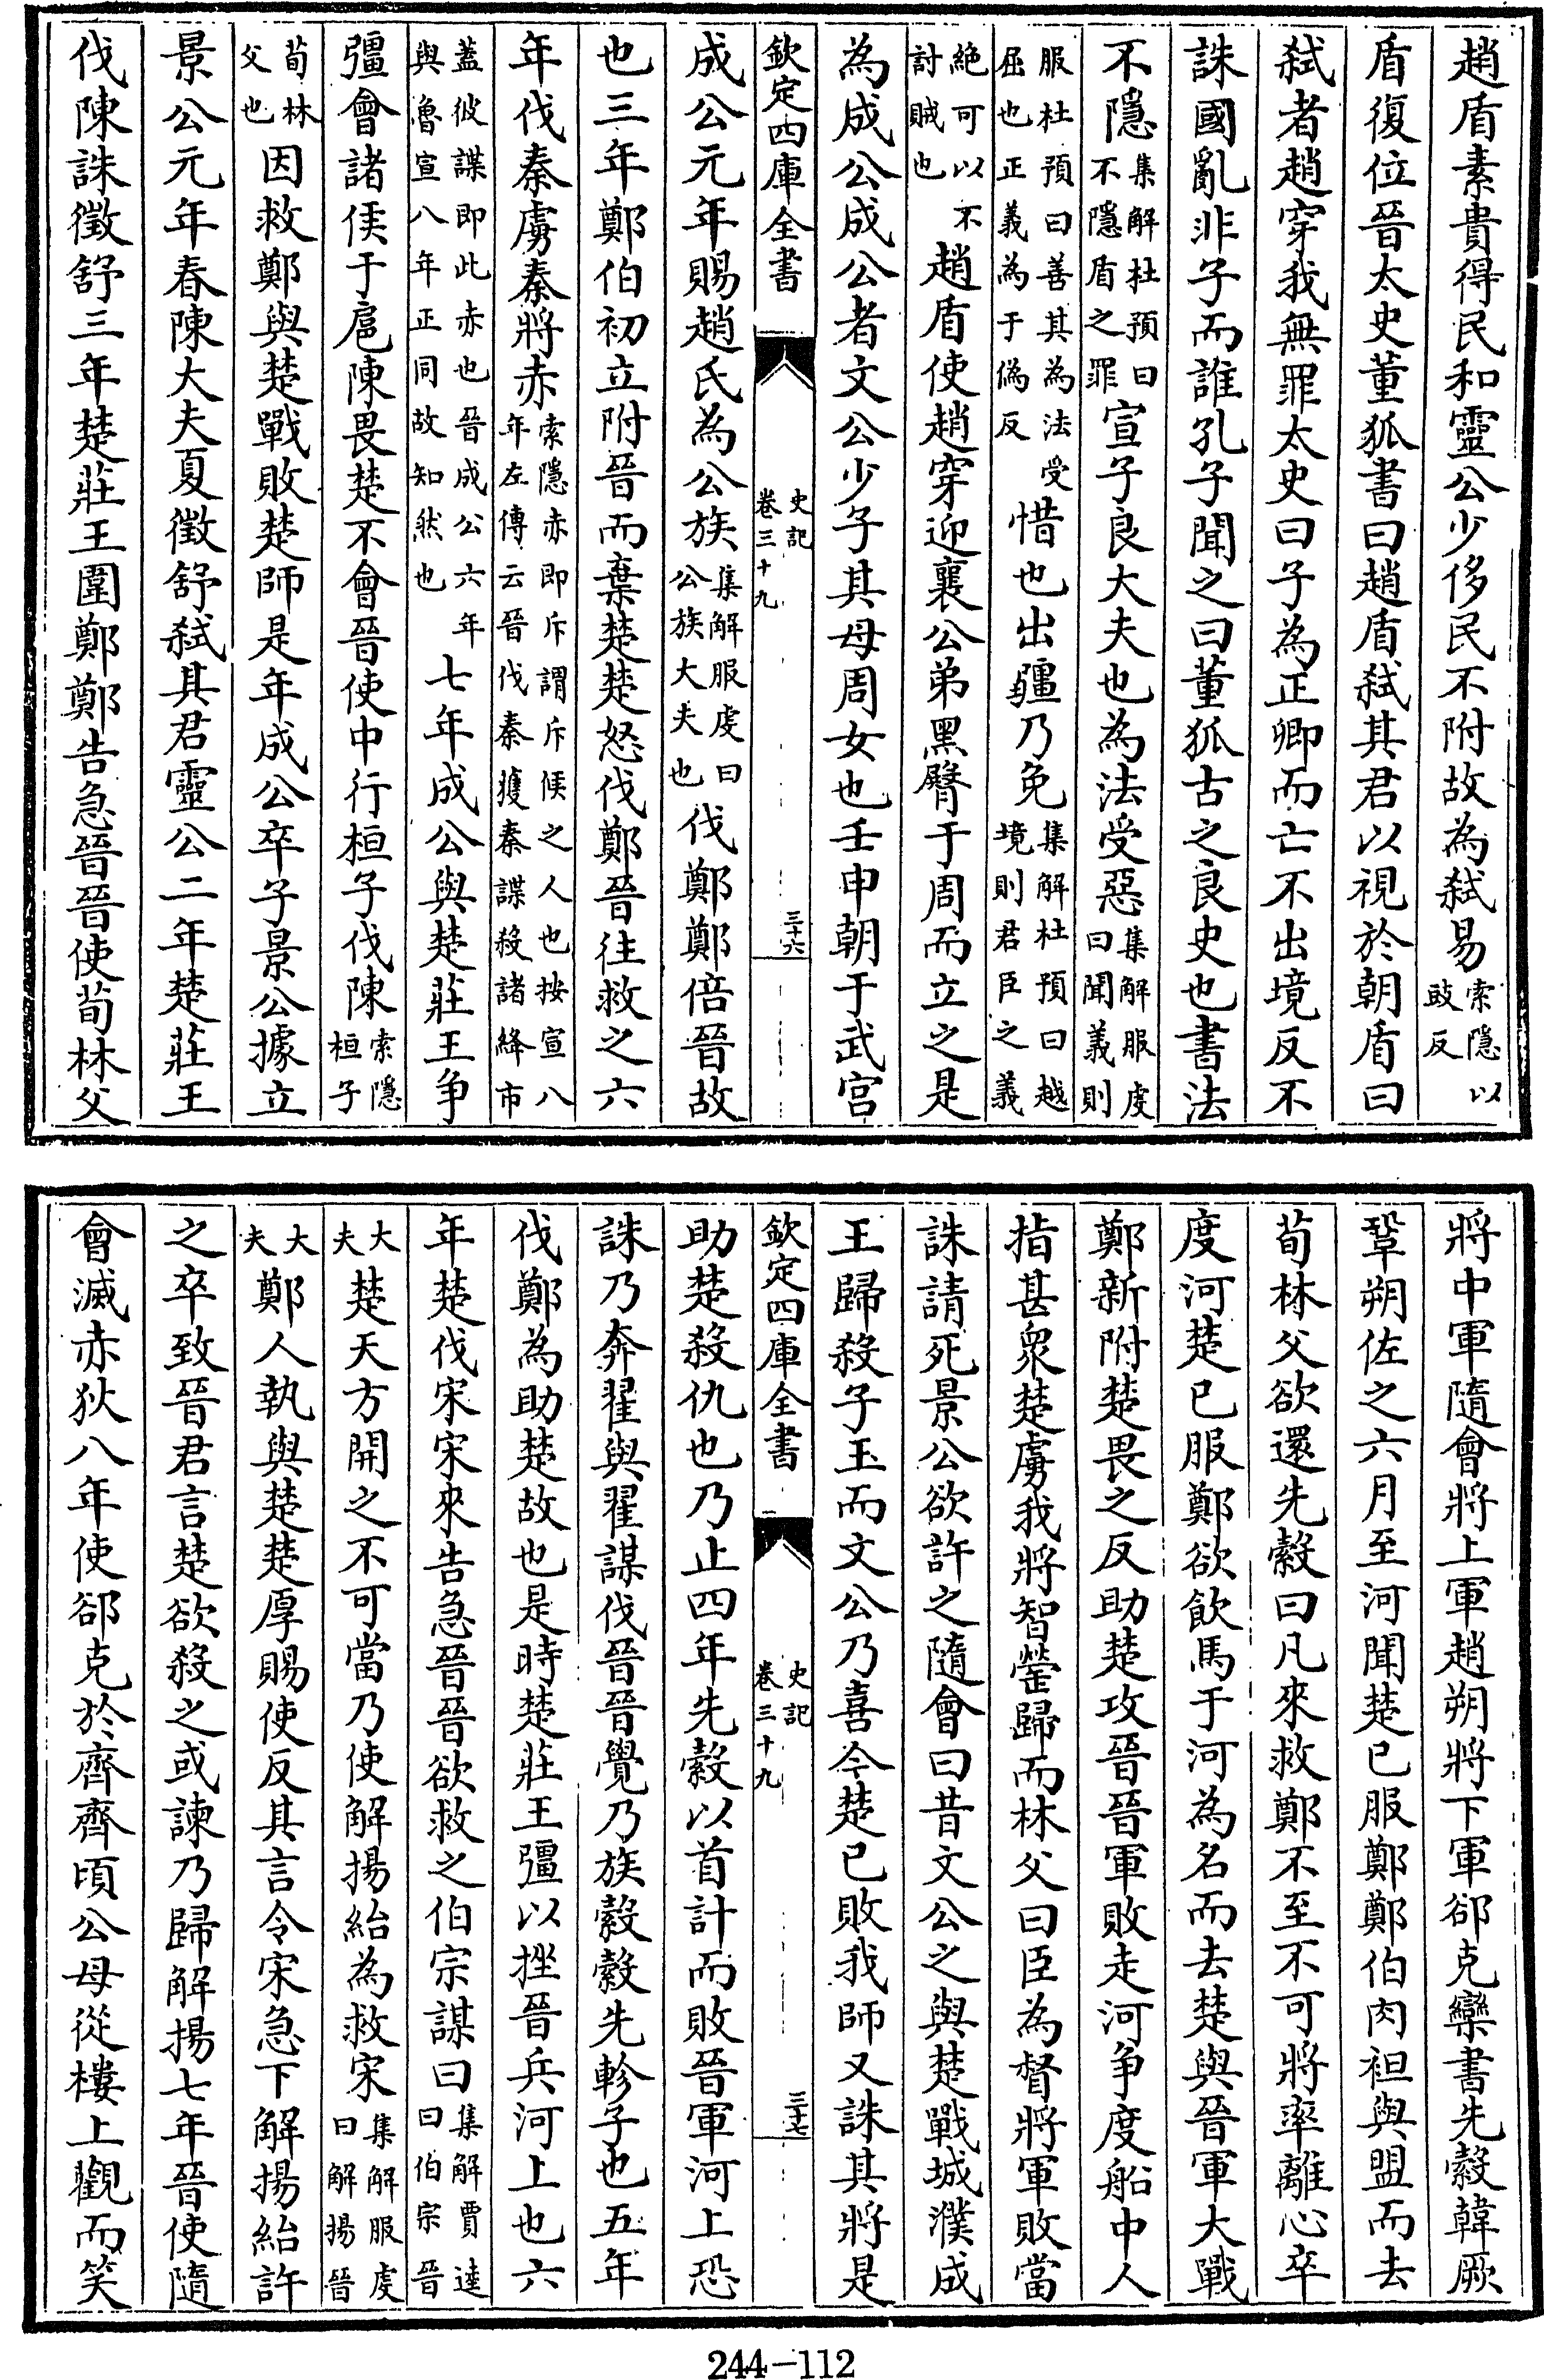 趙盾素貴得民和靈公少侈民不附故為弑易索隱以豉反
盾復位晉太史董狐書曰趙盾弑其君以視於朝盾曰
弑者趙穿我無罪太史曰子為正卿而亡不出境反不
誅國亂非子而誰孔子聞之曰董狐古之良史也書法
不隱集解杜預曰不隱盾之罪宣子良大夫也為法受惡集解服虔曰聞義則
服杜預曰善其為法受屈也正義為于偽反惜也出疆乃免集解杜預曰越境則君臣之義
絶可以不討賊也趙盾使趙穿迎襄公弟黑臀于周而立之是
為成公成公者文公少子其母周女也壬申朝于武宫
欽定四庫全書 史記卷三十九 三十六
成公元年賜趙氏為公族集解服虔曰公族大夫也伐鄭鄭倍晉故
也三年鄭伯初立附晉而棄楚楚怒伐鄭晉往救之六
年伐秦虜秦將赤索隱赤即斥謂斥候之人也按宣八年左傳云晉伐秦獲秦諜殺諸絳市
蓋彼諜即此赤也晉成公六年與魯宣八年正同故知然也七年成公與楚莊王争
彊會諸侯于扈陳畏楚不會晉使中行桓子伐陳索隱桓子
荀林父也因救鄭與楚戰敗楚師是年成公卒子景公據立
景公元年春陳大夫夏徵舒弑其君靈公二年楚莊王
伐陳誅徵舒三年楚莊王圍鄭鄭告急晉晉使荀林父
將中軍隨會將上軍趙朔將下軍郤克欒書先縠韓厥
鞏朔佐之六月至河聞楚已服鄭鄭伯肉袒與盟而去
荀林父欲還先縠曰凡來救鄭不至不可將率離心卒
度河楚已服鄭欲飲馬于河為名而去楚與晉軍大戰
鄭新附楚畏之反助楚攻晉晉軍敗走河争度船中人
指甚衆楚虜我將智罃歸而林父曰臣為督將軍敗當
誅請死景公欲許之隨會曰昔文公之與楚戰城濮成
王歸殺子玉而文公乃喜今楚已敗我師又誅其將是
欽定四庫全書 史記卷三十九 三十七
助楚殺仇也乃止四年先縠以首計而敗晉軍河上恐
誅乃奔翟與翟謀伐晉晉覺乃族縠縠先軫子也五年
伐鄭為助楚故也是時楚莊王彊以挫晉兵河上也六
年楚伐宋宋來告急晉晉欲救之伯宗謀曰集解賈逵曰伯宗晉
大夫楚天方開之不可當乃使解揚紿為救宋集解服虔曰解揚晉
大夫鄭人執與楚楚厚賜使反其言令宋急下解揚紿許
之卒致晉君言楚欲殺之或諫乃歸解揚七年晉使隨
會滅赤狄八年使郤克於齊齊頃公母從樓上觀而笑
244—112